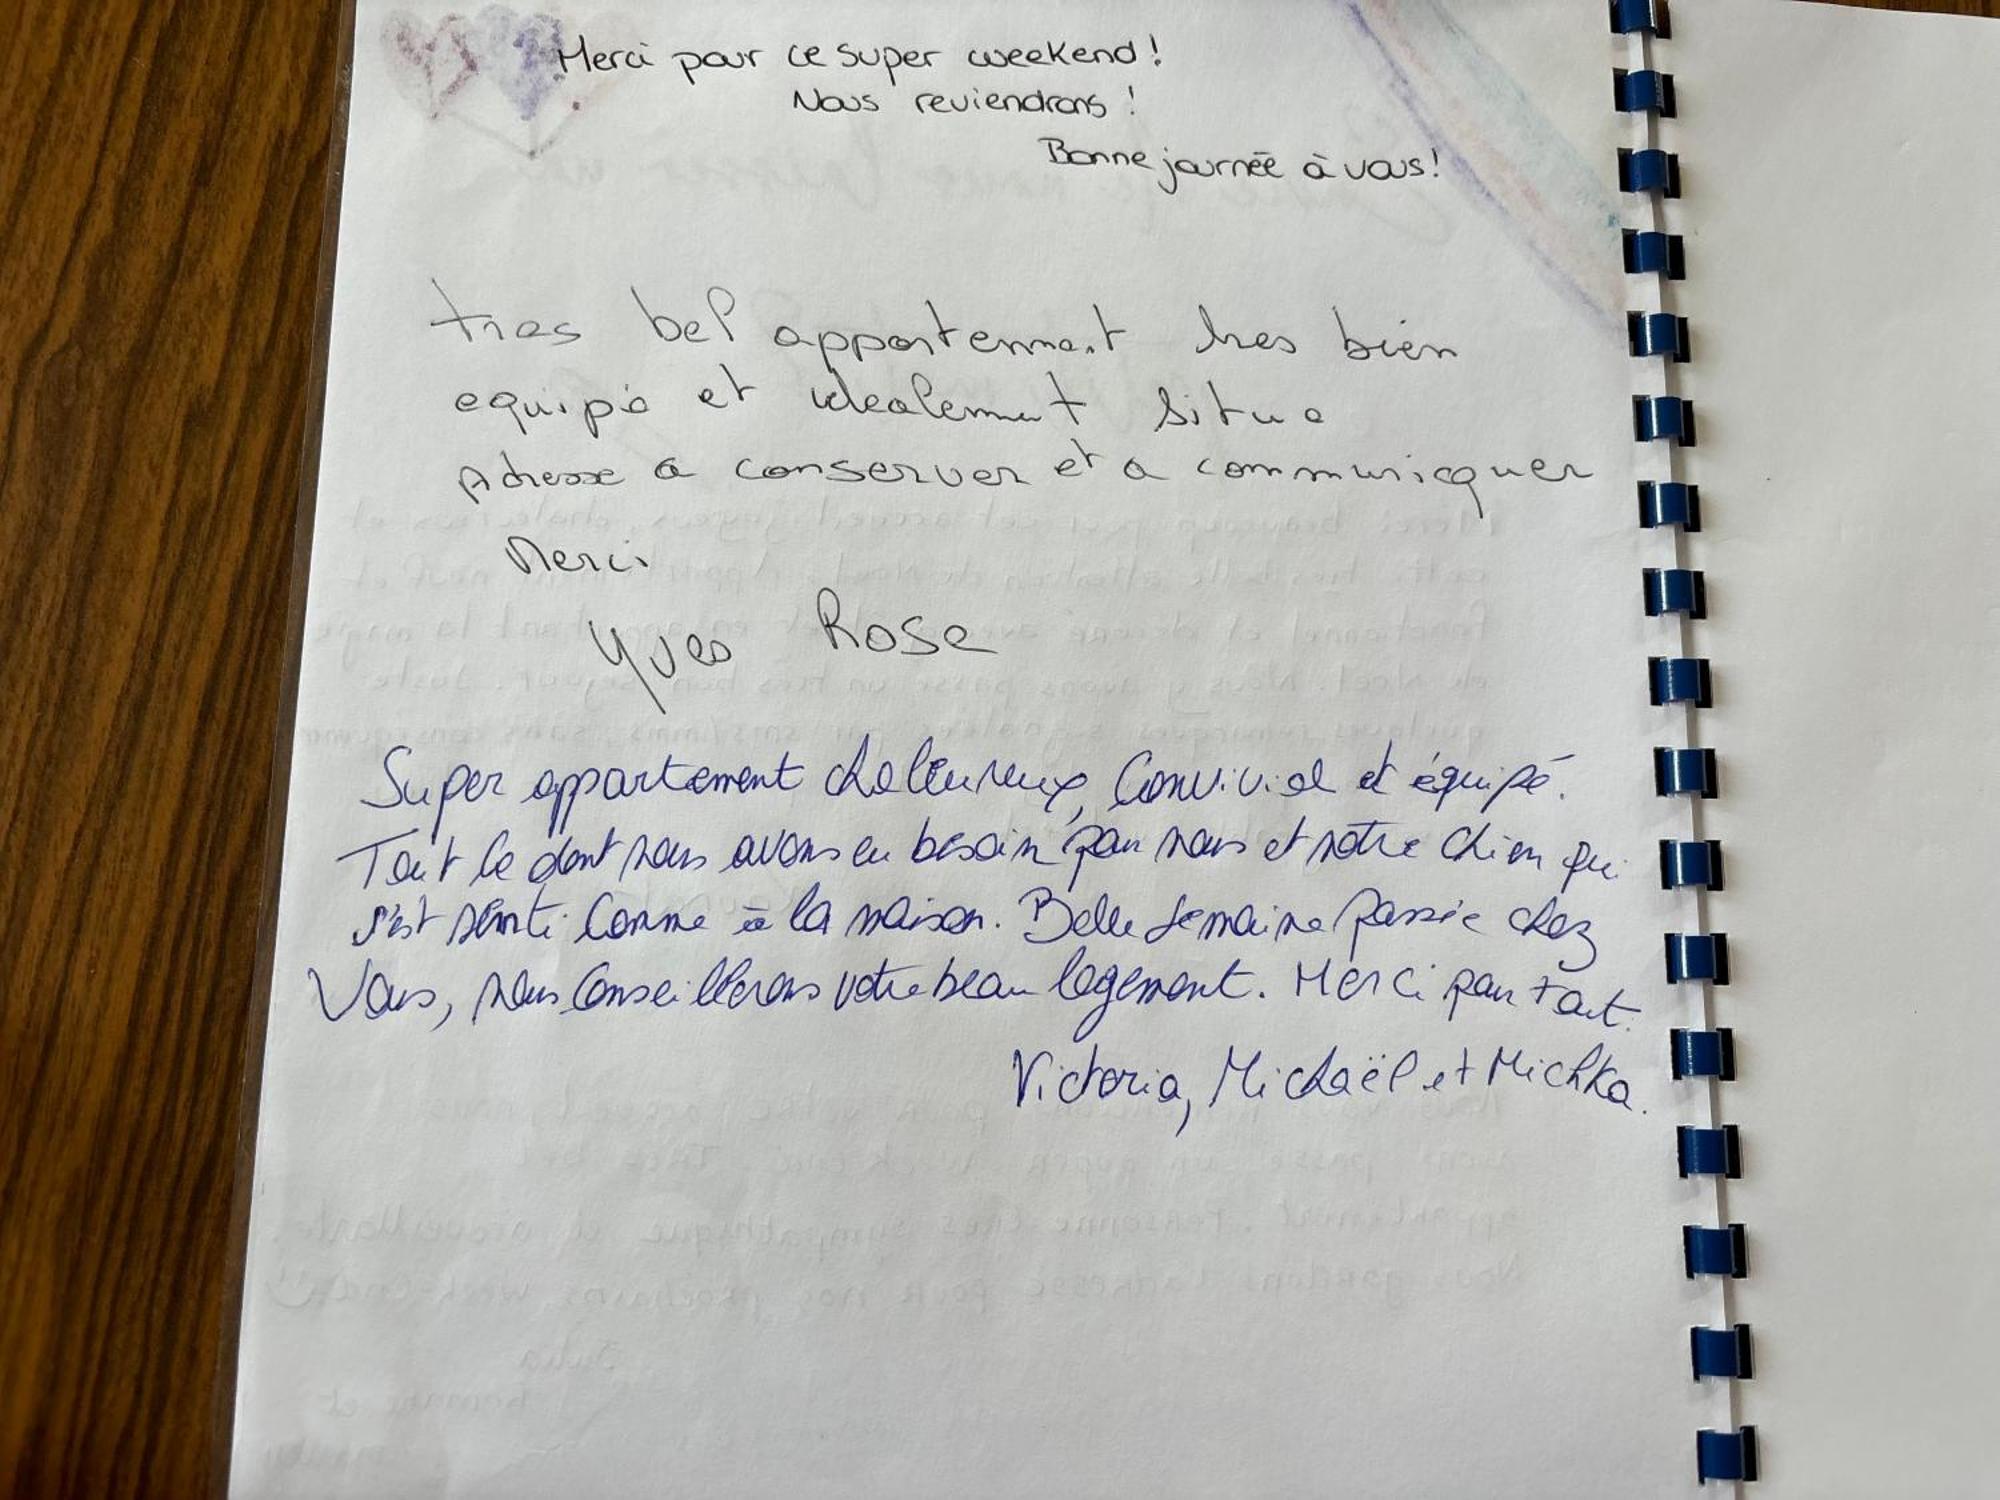 Merci pour ce super weekend !
Nous reviendrons !
Bonne journée à vous !
tres bel appartennent tres bien
equipé et idealement situe
Adresse a conserver et a communicquer
Merci
Yves Rose
Super appartement chaleureux, Convivial et équipé.
Tout ce dont nous avons eu besoin pour nous et notre chien qui
s'est senti comme à la maison. Belle semaine passée chez
Vous, nous conseillerons votre beau logement. Merci pour tout.
Victoria, Michaël et Michka.